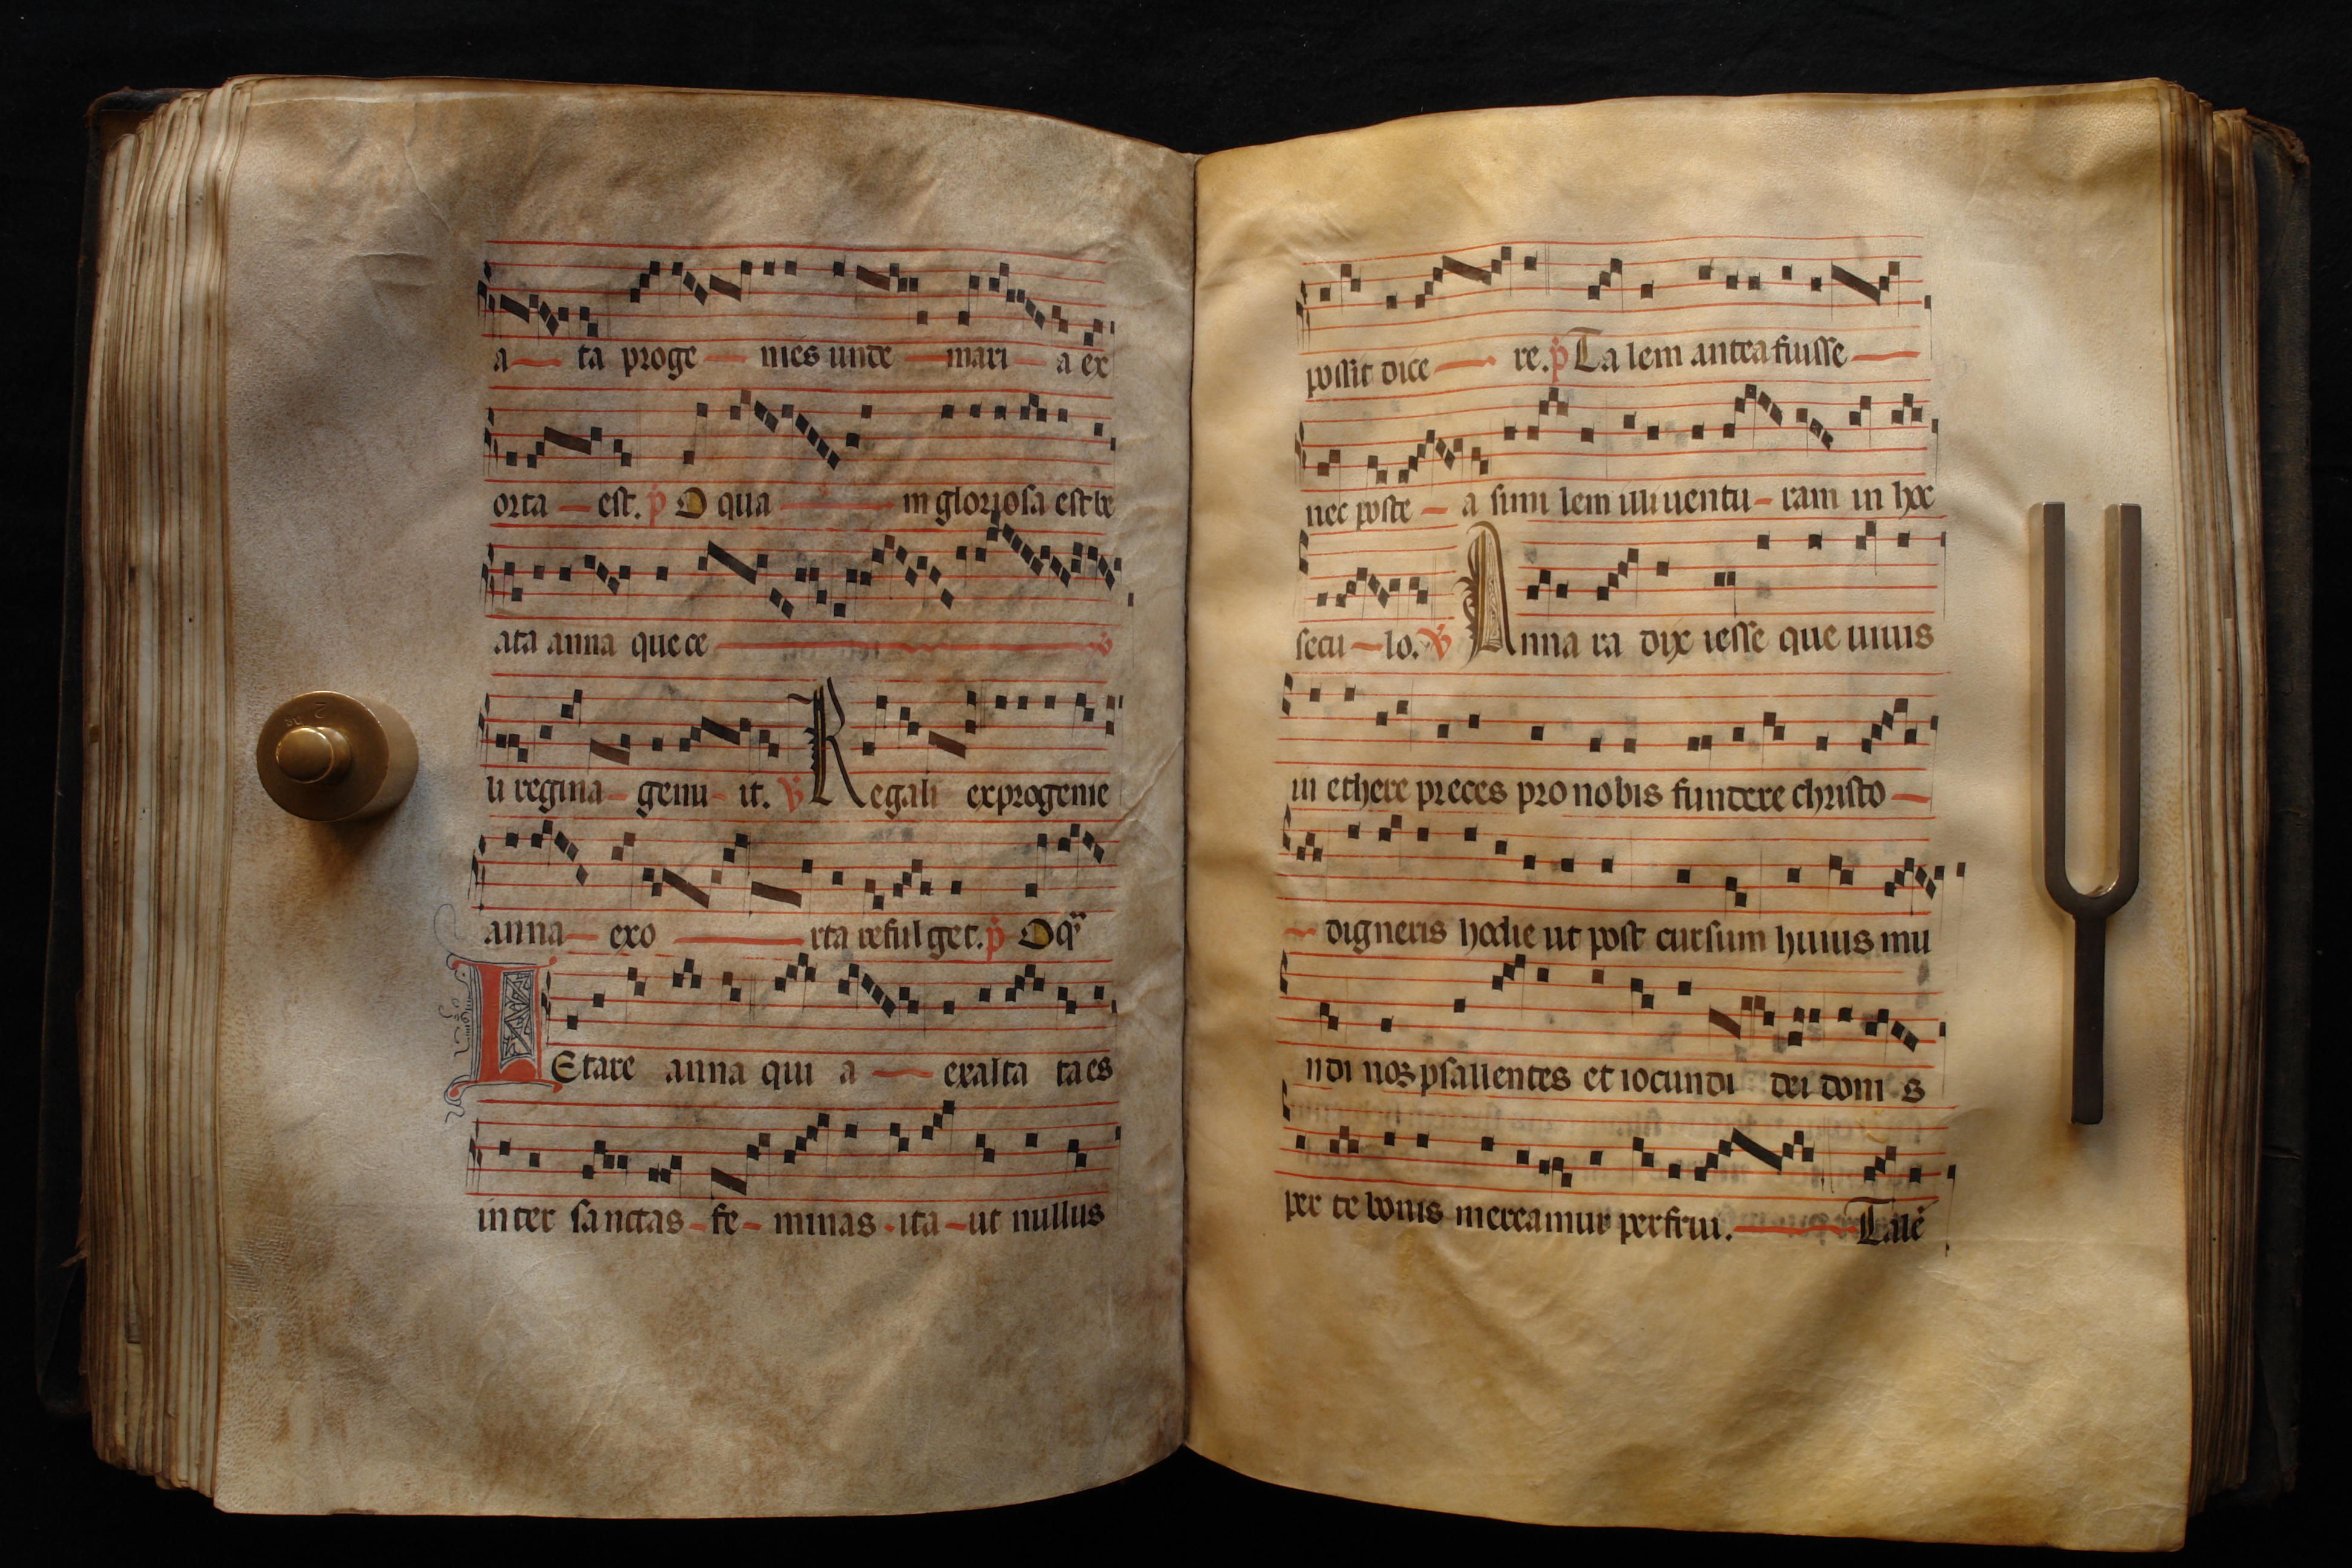 a ta proge nies unde mari a ex
orta est. p O qua m gloriosa est be
ata anna que ce
li regina genu it. V Regali ex progenie
anna exo rta refulget. p O q̃
Letare anna qui a exalta ta es
inter sanctas fe minas ita ut nullus
possit dice re. p Ta lem antea fuisse
nec poste a simi lem illi uentu ram in hoc
secu lo. V Anna ra dix iesse que uiuis
in ethere preces pro nobis fundere christo
digneris hodie ut post cursum huius mu
ndi nos psallentes et iocundi dei doni s
per te bonis mereamur perfrui. Talē
2